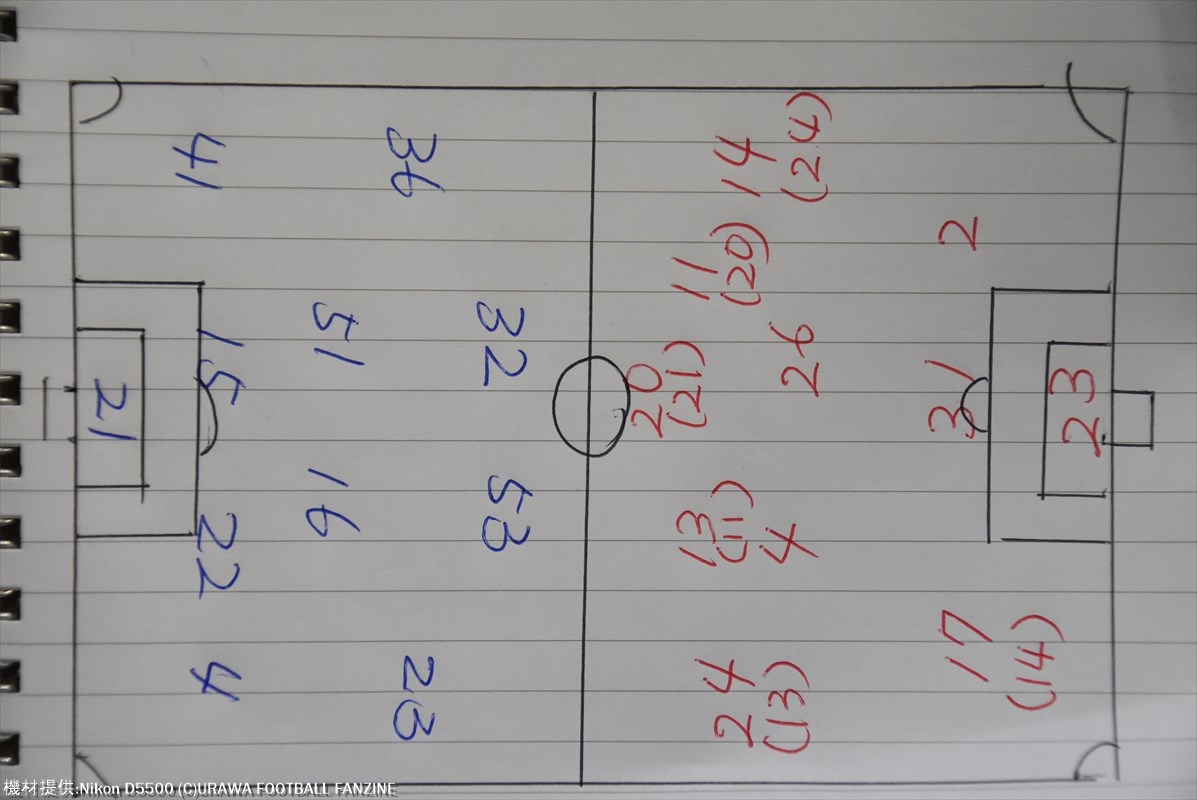 41
36
15
51
32
21
16
53
22
4
23
14
(24)
2
11
(20)
26
20
(21)
31
23
13
(11)
4
17
(14)
24
(13)
機材提供:Nikon D5500 (C)URAWA FOOTBALL FANZINE